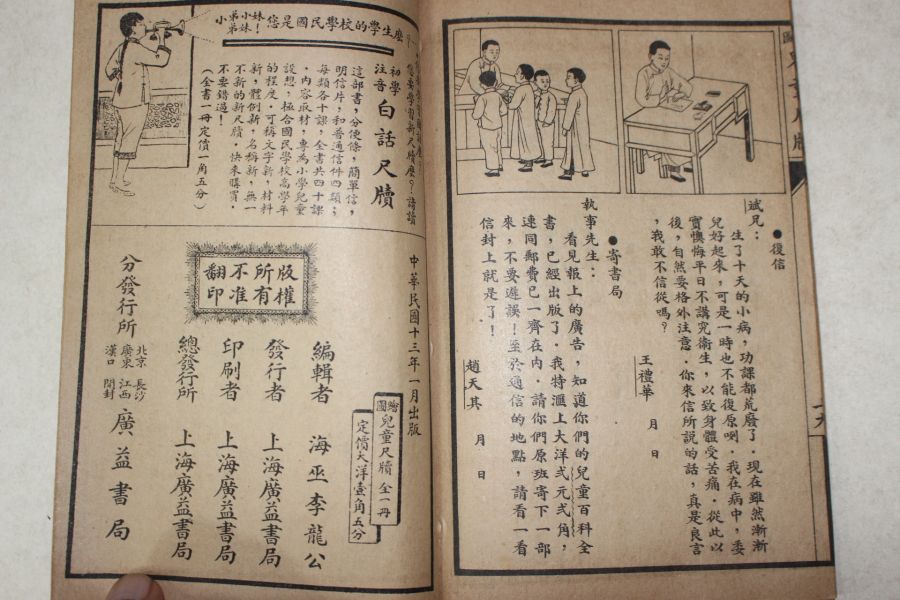 ●復信
斌兄：
生了十天的小病，功課都荒廢了．現在雖然漸漸
兒好起來，可是一時也不能復原咧．我在病中，委
實懊悔平日不講究衞生，以致身體受苦痛．從此以
後，自然要格外注意．你來信所說的話，真是良言
，我敢不信從嗎？
王禮華　月　日
●寄書局
執事先生：
看見報上的廣告，知道你們的兒童百科全
書，已經出版了．我特滙上大洋弍元弍角，
連同郵費已一齊在內．請你們原班寄下一部
來，不要遲誤！至於通信的地點，請看一看
信封上就是了！
趙天其　月　日
小弟弟小妹妹！您是國民學校的學生麼
您要學習新尺牘麼？請讀
初學注音白話尺牘
這部書，分便條，簡單信，
明信片，和普通信件四類；
每類各十課，全書共四十課
．內容取材，專為小學兒童
設想；極合國民學校高學年
的程度．可稱文字新，材料
新，體例新，名稱新，無一
不新的新尺牘．快來購買．
不要錯過！
（全書一冊定價一角五分）
中華民國十三年一月出版
繪圖兒童尺牘全一冊
定價大洋壹角五分
版權所有不准翻印
編輯者　海巫李龍公
發行者　上海廣益書局
印刷者　上海廣益書局
總發行所　上海廣益書局
分發行所　北京　廣東　漢口　長沙　江西　開封　廣益書局